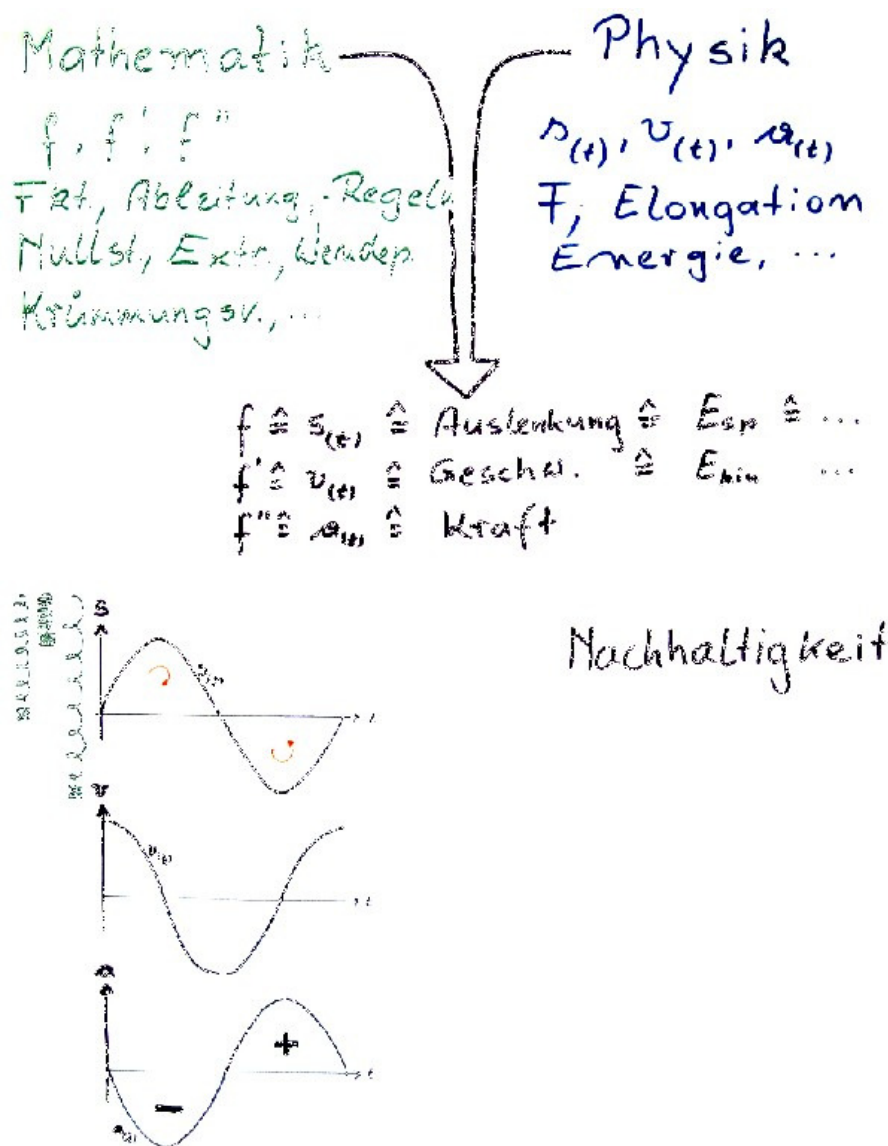 Mathematik
f, f', f''
Fkt., Ableitung, -Regeln
Nullst, Extr., Wendep.
Krümmungsv., ...
Physik
s(t), v(t), a(t)
F, Elongation
Energie, ...
f ≙ s(t) ≙ Auslenkung ≙ E_sp ≙ ...
f' ≙ v(t) ≙ Geschw. ≙ E_kin ...
f'' ≙ a(t) ≙ Kraft
Nachhaltigkeit
s
s(t)
t
v
v(t)
t
a
+
t
−
a(t)